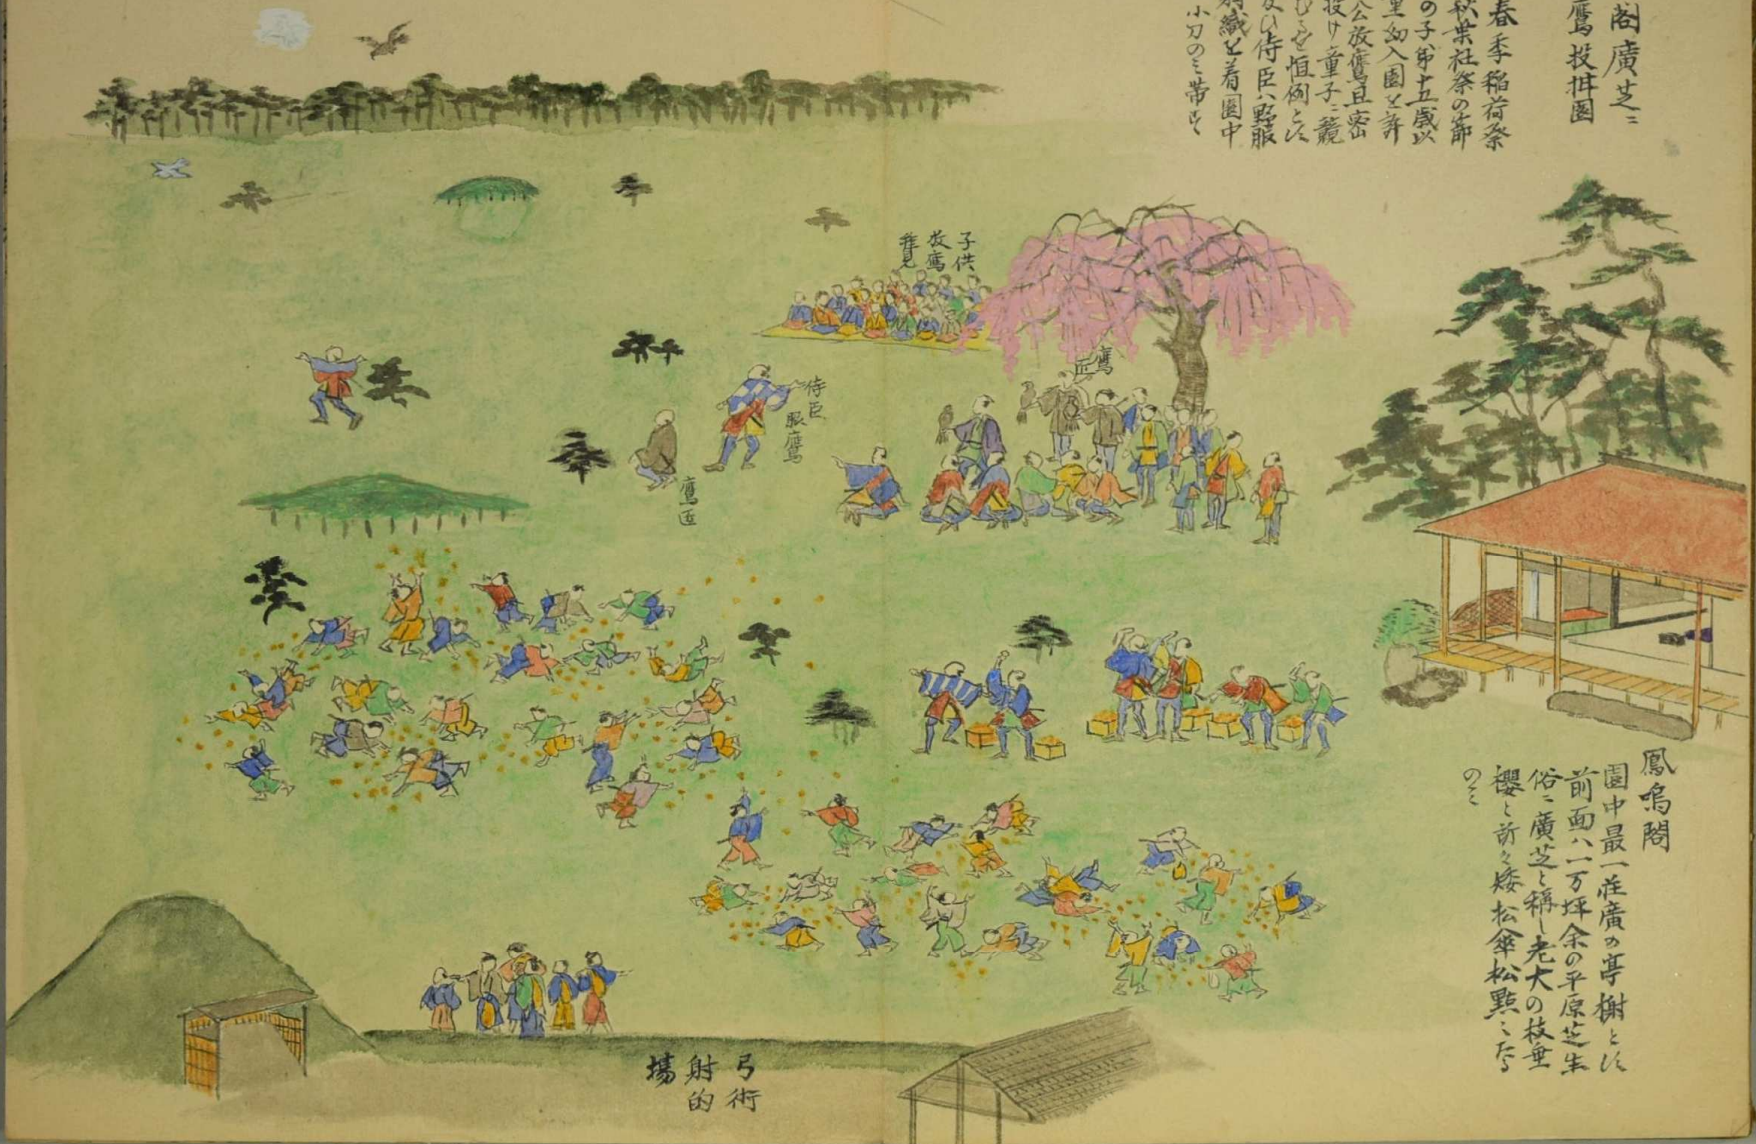 閣廣芝ニ
鷹投柑圖
春季稲荷祭
秋葉社祭の節
の子弟十五歳以
入園を許
公放鷹且蜜
投け童子ニ競
を恒例とす
及ひ侍臣ハ野服
羽織を着園中
小刀のミ帯す
子供
放鷹
拝見
鷹匠
侍臣
鷹匠
鳳鳴閣
園中最一荘廣の亭榭とす
前面ハ一万坪余の平原芝生
俗ニ廣芝と稱し老大の枝垂
櫻と所々矮松傘松點々たる
のミ
弓術
射的
場